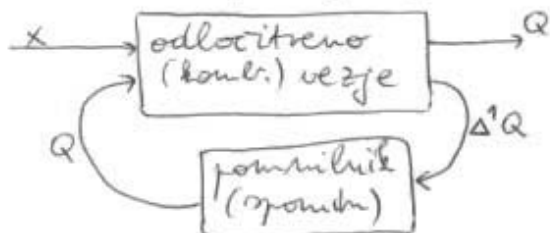 x
odločitveno
(komb.) vezje
Q
Q
Δ¹Q
pomnilnik